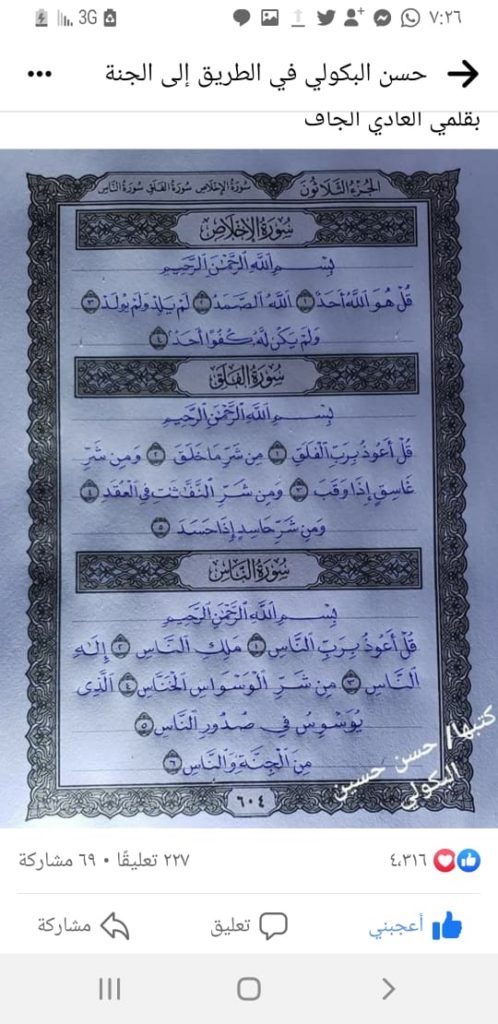 ٧:٢٦
3G
حسن البكولي في الطريق إلى الجنة
بقلمي العادي الجاف
الجزء الثلاثون
سورة الإخلاص سورة الفلق سورة الناس
سُورَةُ الإِخْلَاصِ
بِسْمِ اللَّهِ الرَّحْمَٰنِ الرَّحِيمِ
قُلْ هُوَ اللَّهُ أَحَدٌ ١ اللَّهُ الصَّمَدُ ٢ لَمْ يَلِدْ وَلَمْ يُولَدْ ٣
وَلَمْ يَكُن لَّهُ كُفُوًا أَحَدٌ ٤
سُورَةُ الْفَلَقِ
بِسْمِ اللَّهِ الرَّحْمَٰنِ الرَّحِيمِ
قُلْ أَعُوذُ بِرَبِّ الْفَلَقِ ١ مِن شَرِّ مَا خَلَقَ ٢ وَمِن شَرِّ
غَاسِقٍ إِذَا وَقَبَ ٣ وَمِن شَرِّ النَّفَّٰثَٰتِ فِي الْعُقَدِ ٤
وَمِن شَرِّ حَاسِدٍ إِذَا حَسَدَ ٥
سُورَةُ النَّاسِ
بِسْمِ اللَّهِ الرَّحْمَٰنِ الرَّحِيمِ
قُلْ أَعُوذُ بِرَبِّ النَّاسِ ١ مَلِكِ النَّاسِ ٢ إِلَٰهِ
النَّاسِ ٣ مِن شَرِّ الْوَسْوَاسِ الْخَنَّاسِ ٤ الَّذِي
يُوَسْوِسُ فِي صُدُورِ النَّاسِ ٥
مِنَ الْجِنَّةِ وَالنَّاسِ ٦
كتبها/ حسن حسين
البكولي
٦٠٤
٤٬٣١٦
٢٢٧ تعليقًا • ٦٩ مشاركة
أعجبني
تعليق
مشاركة